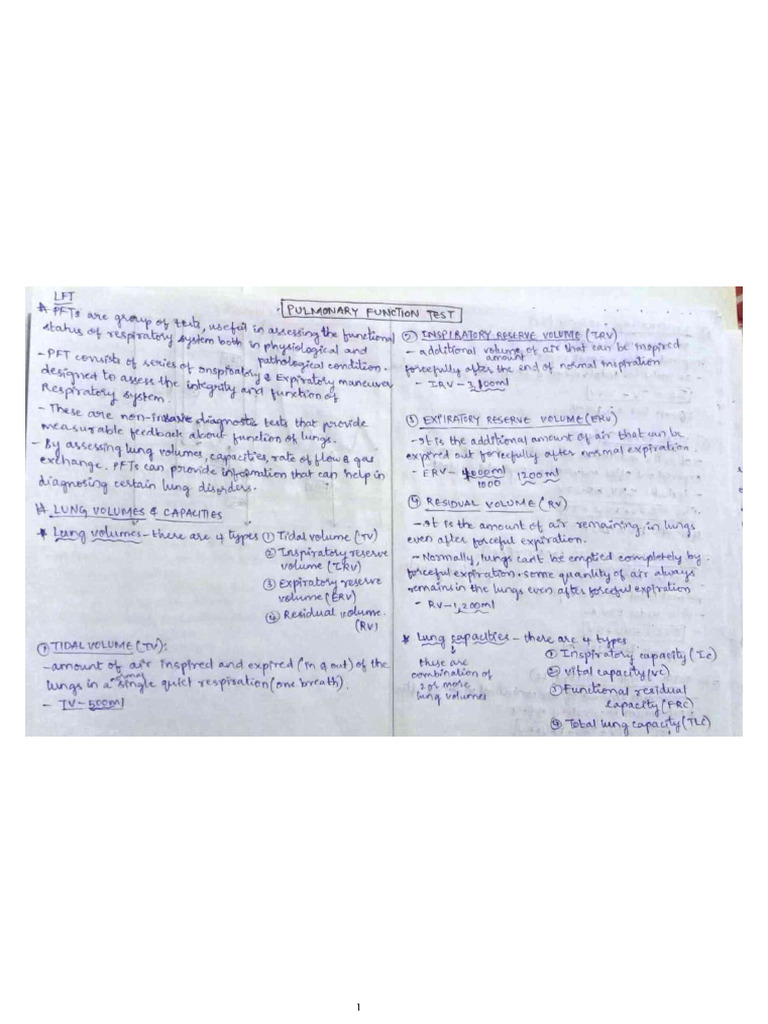 LFT
PULMONARY FUNCTION TEST
* PFTs are group of tests, useful in assessing the functional
status of respiratory system both in physiological and
pathological condition.
- PFT consists of series of Inspiratory & Expiratory maneuver
designed to assess the integrity and function of
Respiratory system.
- These are non-invasive diagnostic tests that provide
measurable feedback about function of lungs.
- By assessing lung volumes, capacities, rate of flow & gas
exchange. PFTs can provide information that can help in
diagnosing certain lung disorders.
# LUNG VOLUMES & CAPACITIES
* Lung volumes - there are 4 types ① Tidal volume (TV)
② Inspiratory reserve
volume (IRV)
③ Expiratory reserve
volume (ERV)
④ Residual volume.
(RV)
① TIDAL VOLUME (TV):
- amount of air inspired and expired (in & out) of the
lungs in a normal single quiet respiration (one breath).
- TV - 500ml
② INSPIRATORY RESERVE VOLUME (IRV)
- additional volume of air that can be inspired
amount
forcefully after the end of normal inspiration
- IRV - 3,100ml
③ EXPIRATORY RESERVE VOLUME (ERV)
- It is the additional amount of air that can be
expired out forcefully after normal expiration.
- ERV - 1200ml
1000
④ RESIDUAL VOLUME (RV)
- It is the amount of air remaining in lungs
even after forceful expiration.
- Normally, lungs can't be emptied completely by
forceful expiration. some quantity of air always
remains in the lungs even after forceful expiration
- RV - 1,200ml
* Lung capacities - there are 4 types
these are
combination of
2 or more
lung volumes
① Inspiratory capacity (IC)
② Vital capacity (VC)
③ Functional residual
capacity (FRC)
④ Total lung capacity (TLC)
1